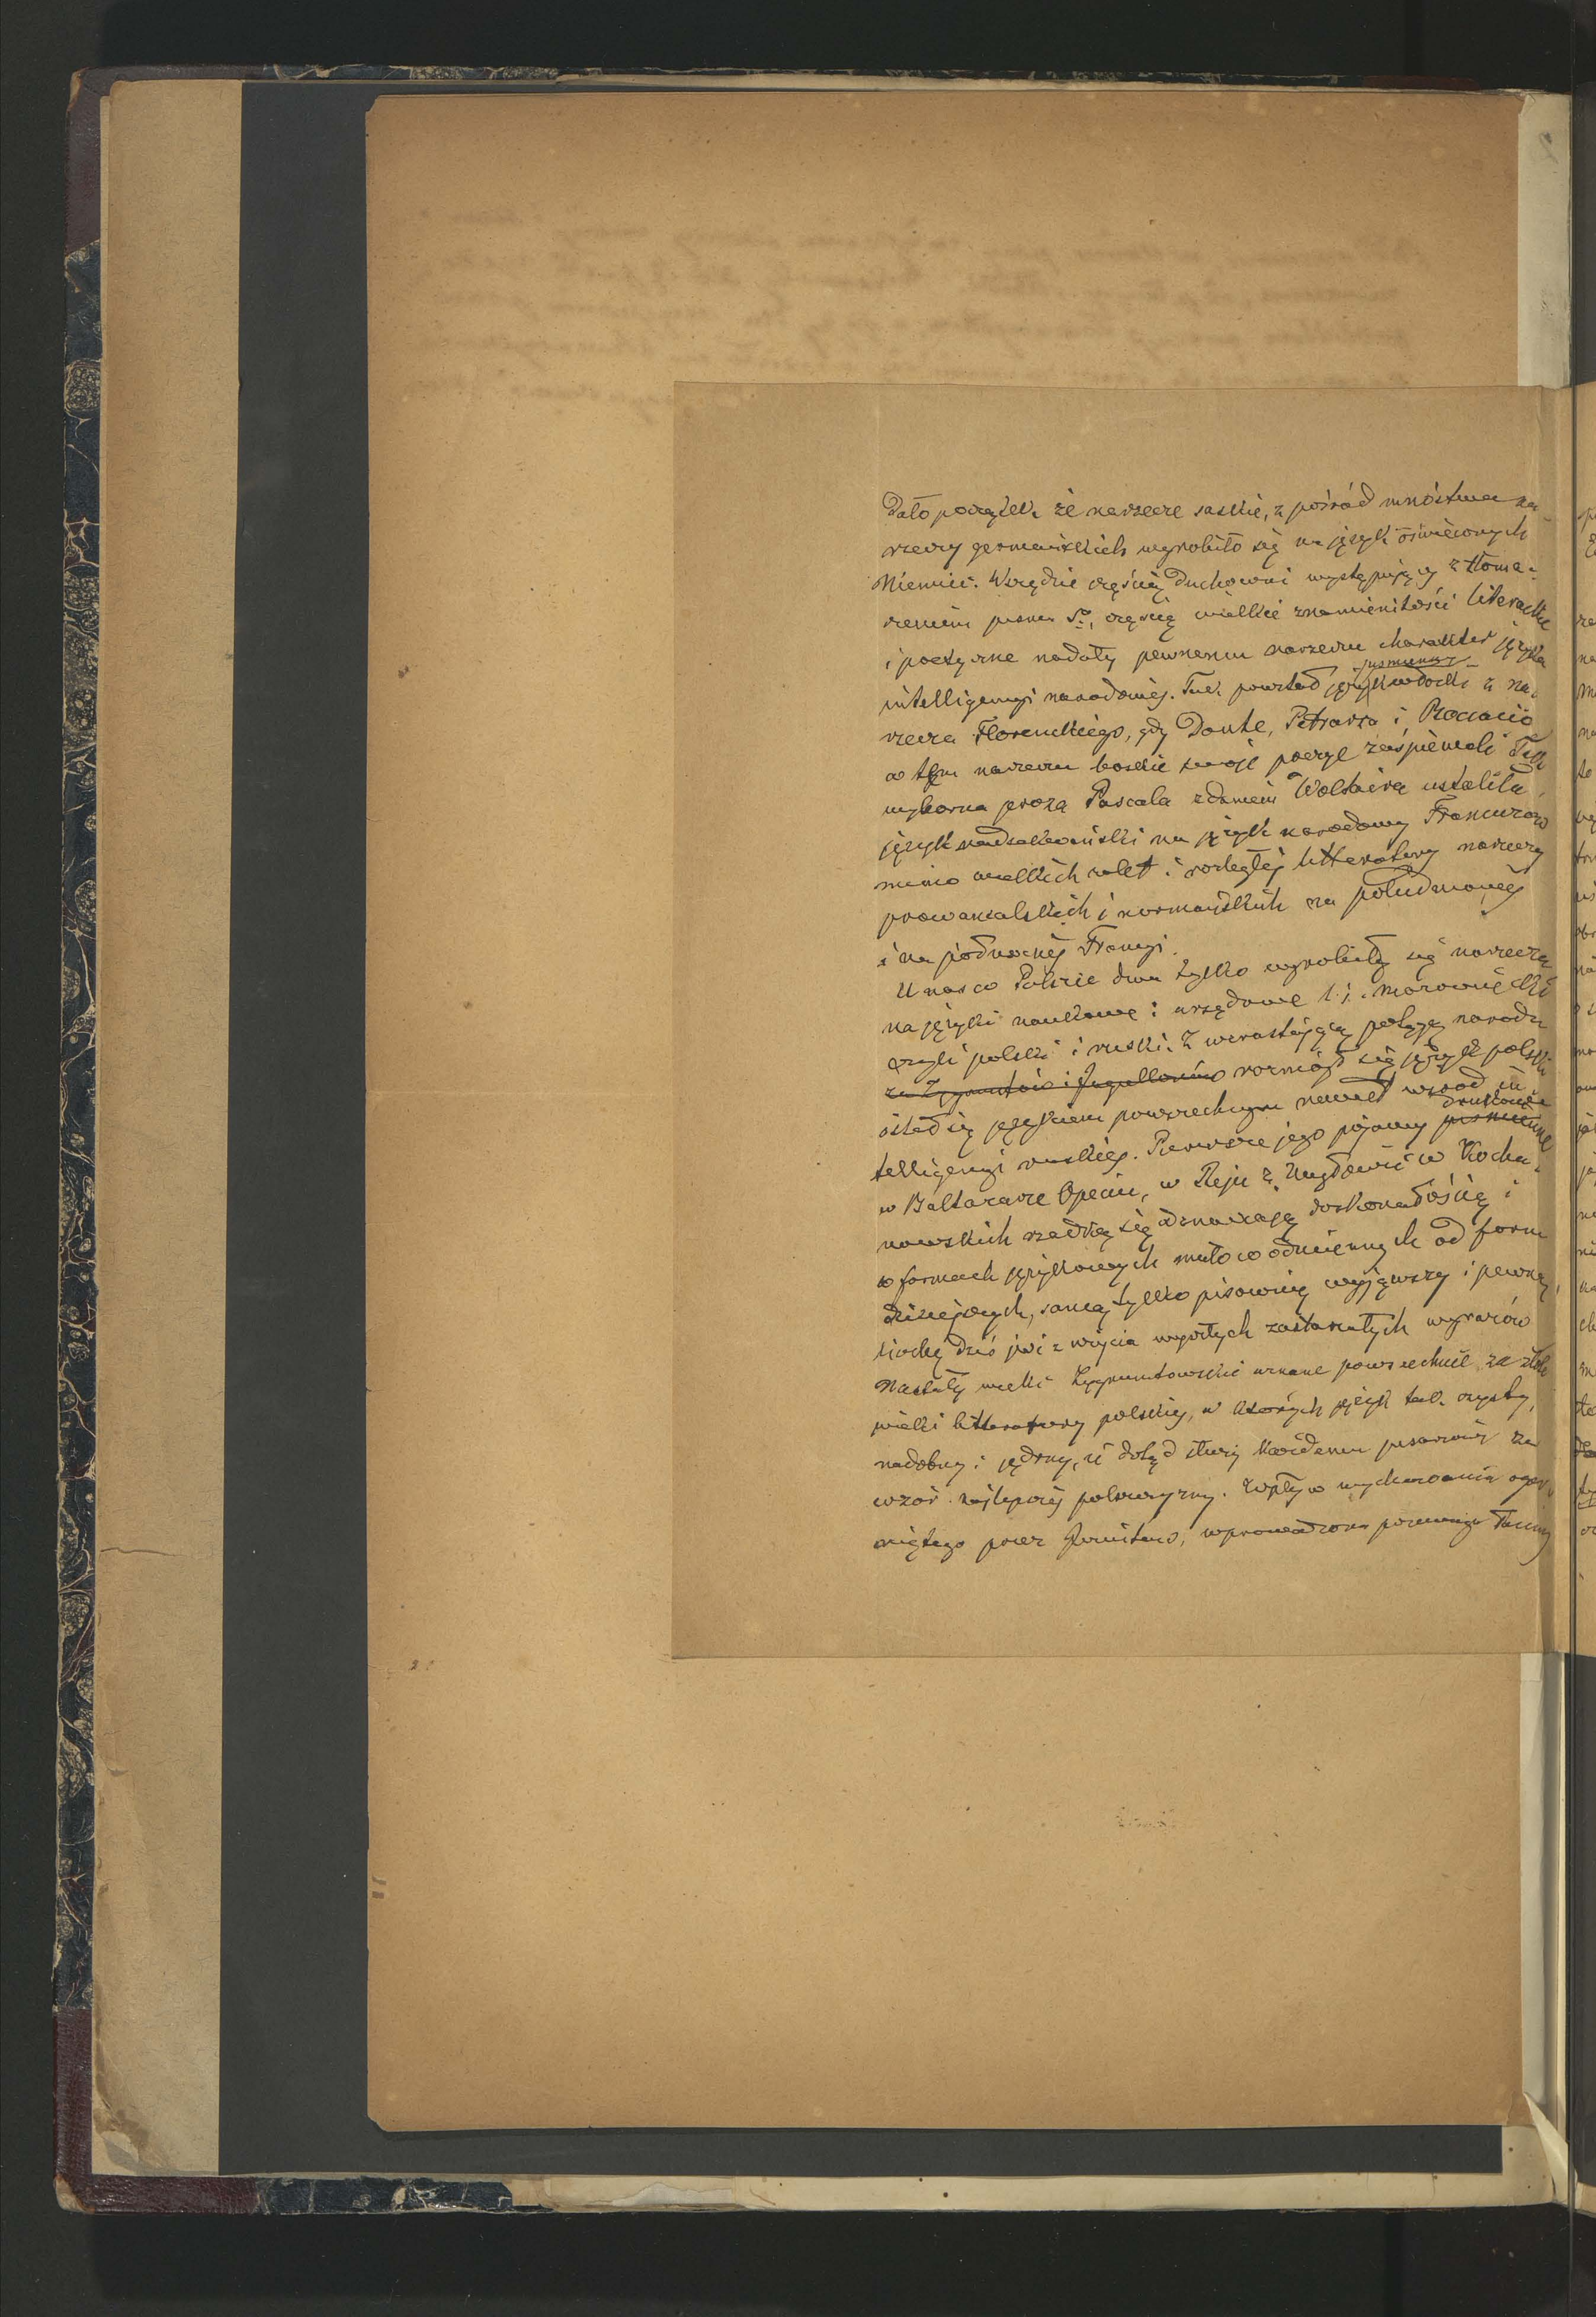 Dało początek że narzecze saskie, z pośród mnóstwa na-
rzeczy germańskich wyrobiło się na język oświeconych
Niemiec. Wszędzie częścią duchowni występujący z tłoma-
czeniem pisma Sº, częścią wielkie znamienitości literackie
i poetyczne nadały pewnemu narzeczu charakter języka
pismienny
intelligencyi narodowéj. Tak powstał język włoski z na-
rzecza Florenckiego, gdy Dante, Petrarka i Bocacio
w tym narzeczu boskie swoje poezye zaśpiewali Tak
wyborna proza Pascala zdaniem Woltaira ustaliła
język nadsekwański na język narodowy Francuzów
mimo wielkich zalet i rozległéj litteratury narzeczy
prowansalskich i normandzkich na południowéj
i na północnéj Francyi.
U nas w Polszcze dwa tylko wyrobiły się narzecza
na języki naukowe i urzędowe t. j. mazowieckie
czyli polski i ruski. Z wzrastającą potęgą narodu
za Zygmuntów i Jagiellonów rozniósł się język polski
ostał się językiem powszechnym nawet wśród in-
drukowane
telligencyi ruskiéj. Pierwsze jego pojawy piśmienne
w Baltazarze Opeciu, w Reju z Nagłowic w Kocha-
nowskich rzadką się odznaczają doskonałością i
w formach językowych mało co odmiennych od form
dzisiejszych, samą tylko pisownią wyjąwszy i pewną
liczbę dziś już z użycia wyszłych zastarzałych wyrazów
Nastały wieki Zygmuntowskie uznane powszechnie za złote
wieki litteratury polskiéj, w których język tak czysty,
nadobny i jędrny, iż dotąd służy każdemu pisarzowi za
wzór najlepszéj polszczyzny. Wpływ wychowania ogar-
niętego przez Jezuitów, wprowadzona przewaga łaciny